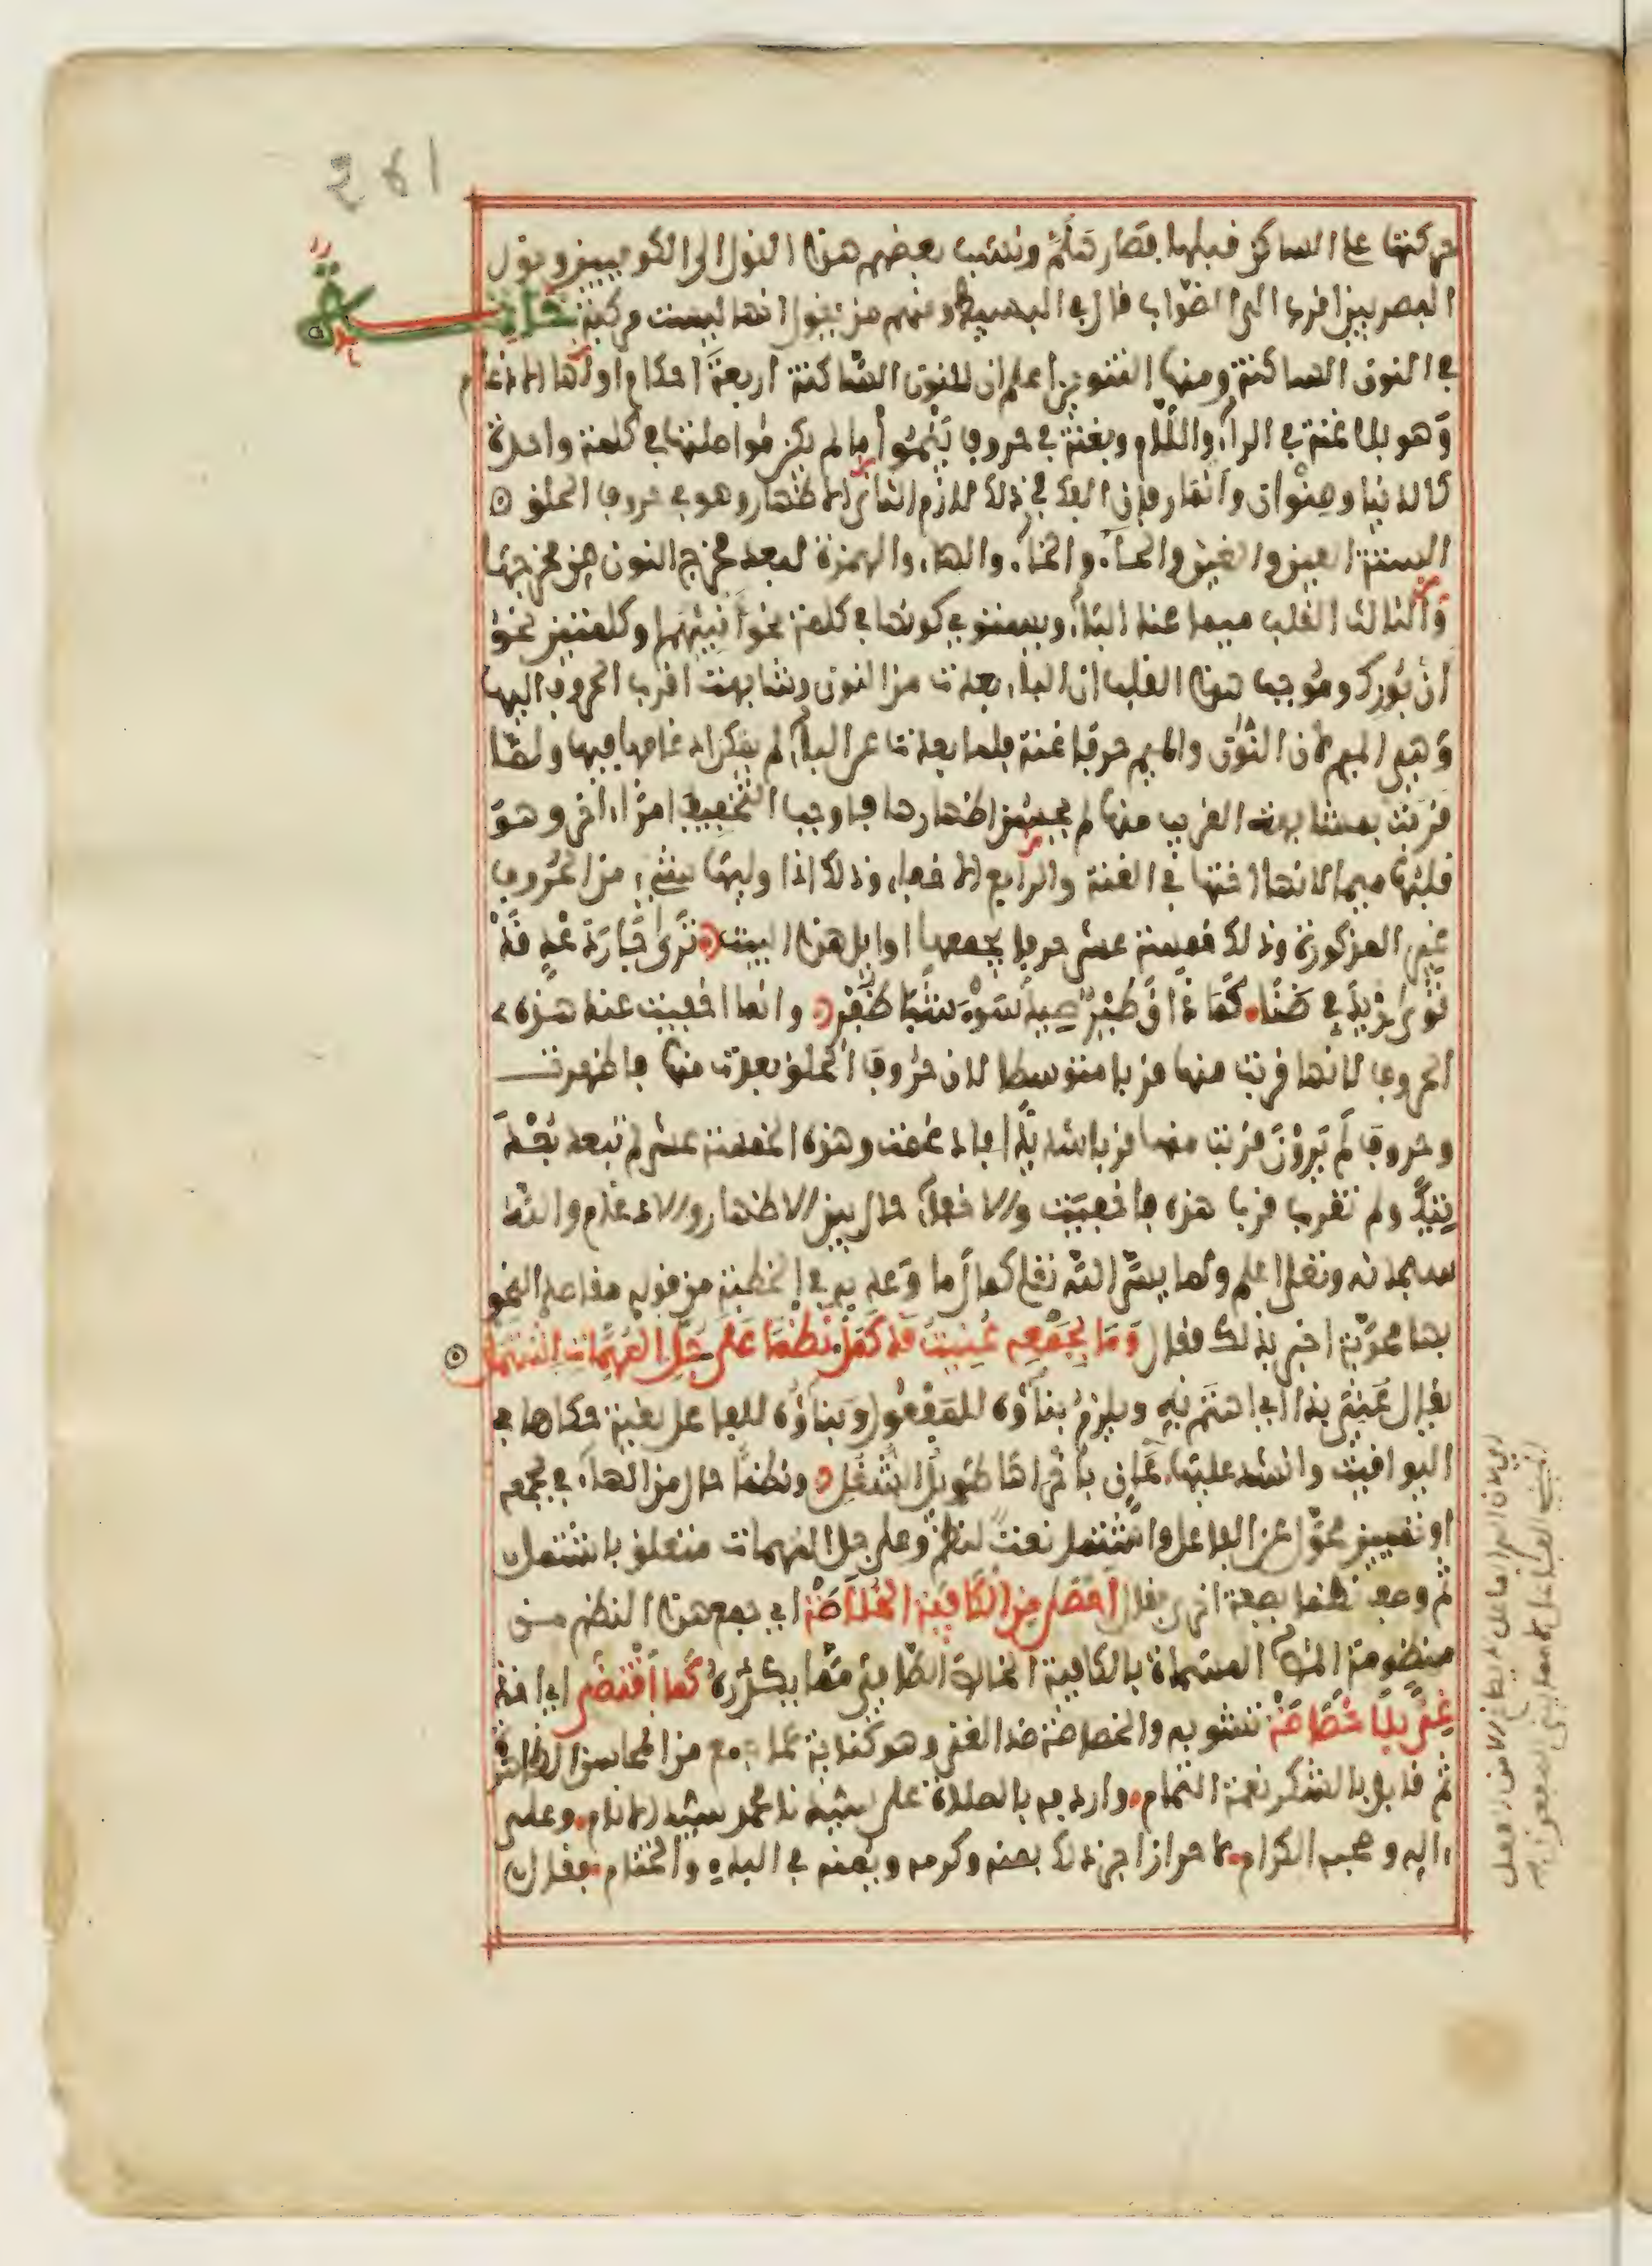 261
حركتها على الساكن قبلها فصار هلم ونسب بعضهم هذا القول الى الكوفيين وقول
البصريين اقرب الى الصواب قال في البسيط ومنهم من يقول انها ليست مركبة خاتمة
في النون الساكنة ومنها التنوين اعلم ان للنون الساكنة اربعة احكام اولها الادغام
وهو بلا غنة في الراء واللام وبغنة في حروف ينمو ما لم يكن مواصلتها في كلمة واحدة
كالدنيا وصنوان وانمار فان الفك في ذلك لازم الثاني الاظهار وهو في حروف الحلق
الستة العين والغين والحاء والخاء والهاء والهمزة لبعد مخرج النون من مخرجها
والثالث القلب ميما عند الباء ويستوي كونها في كلمة نحو أنبئهم او كلمتين نحو
ان بورك وموجب هذا القلب ان الباء بعدت من النون وشابهت اقرب الحروف اليها
وهي الميم لان النون والميم حرفا غنة فلما بعدت عن الباء لم يمكن ادغامها فيها ولما
قربت بمشابهة القريب منها لم يحسن اظهارها فاوجب التخفيف امرا اخر وهو
قلبها ميما لانها اختها في الغنة والرابع الاخفاء وذلك اذا وليها شيء من الحروف
غير المذكورة وذلك خمسة عشر حرفا يجمعها اوايل هذا البيت ترى جارة عد قد
ثوى زيد في ضنا كما ذاق طير صيد سوء شبا ظفر وانما اخفيت عند هذه
الحروف لانها قربت منها قربا متوسطا لان حروف الحلق بعدت منها فاظهرت
وحروف لم يرون قربت منها قربا شديدا فادغمت وهذه الخمسة عشر لم تبعد بعد
تيك ولم تقرب قرب هذه فاخفيت والاخفاء حال بين الاظهار والادغام والله
سبحانه وتعلى اعلم ولما يسر الله تعلى كمال ما وعد به في الخطبة من قوله مقاصد النحو
بها محوية اخبر بذلك فقال وما بجمعه عنيت قد كمل نظما على جل المهمات اشتمل
يقال عني بذا اي اهتم به ويلزم بناؤه للمفعول وبناؤه للفاعل لغية حكاها في
اليواقيت وانشد عليها عان باخراها طويل الشغل ونظما حال من الهاء في بجمعه
او تمييز محول عن الفاعل واشتمل نعت لنظم وعلى جل المهمات متعلق باشتمل
ثم وصف نظما بصفة اخرى فقال أحصى من الكافية الخلاصة اي جمع هذا النظم من
منظومة المص المسماة بالكافية الخالص الصافي مما يكدره كما اقتضى اي اخذ
غنى بلا خصاصة تشوبه والخصاصة ضد الغنى وهو كناية عما جمع من المحاسن الظاهرة
ثم قابل بالشكر نعمة التمام واردفه بالصلاة على سيدنا محمد سيد الانام وعلى
ءاله وصحبه الكرام لاحراز اجر ذلك بمنه وكرمه ويمنه في البدء والختام فقال